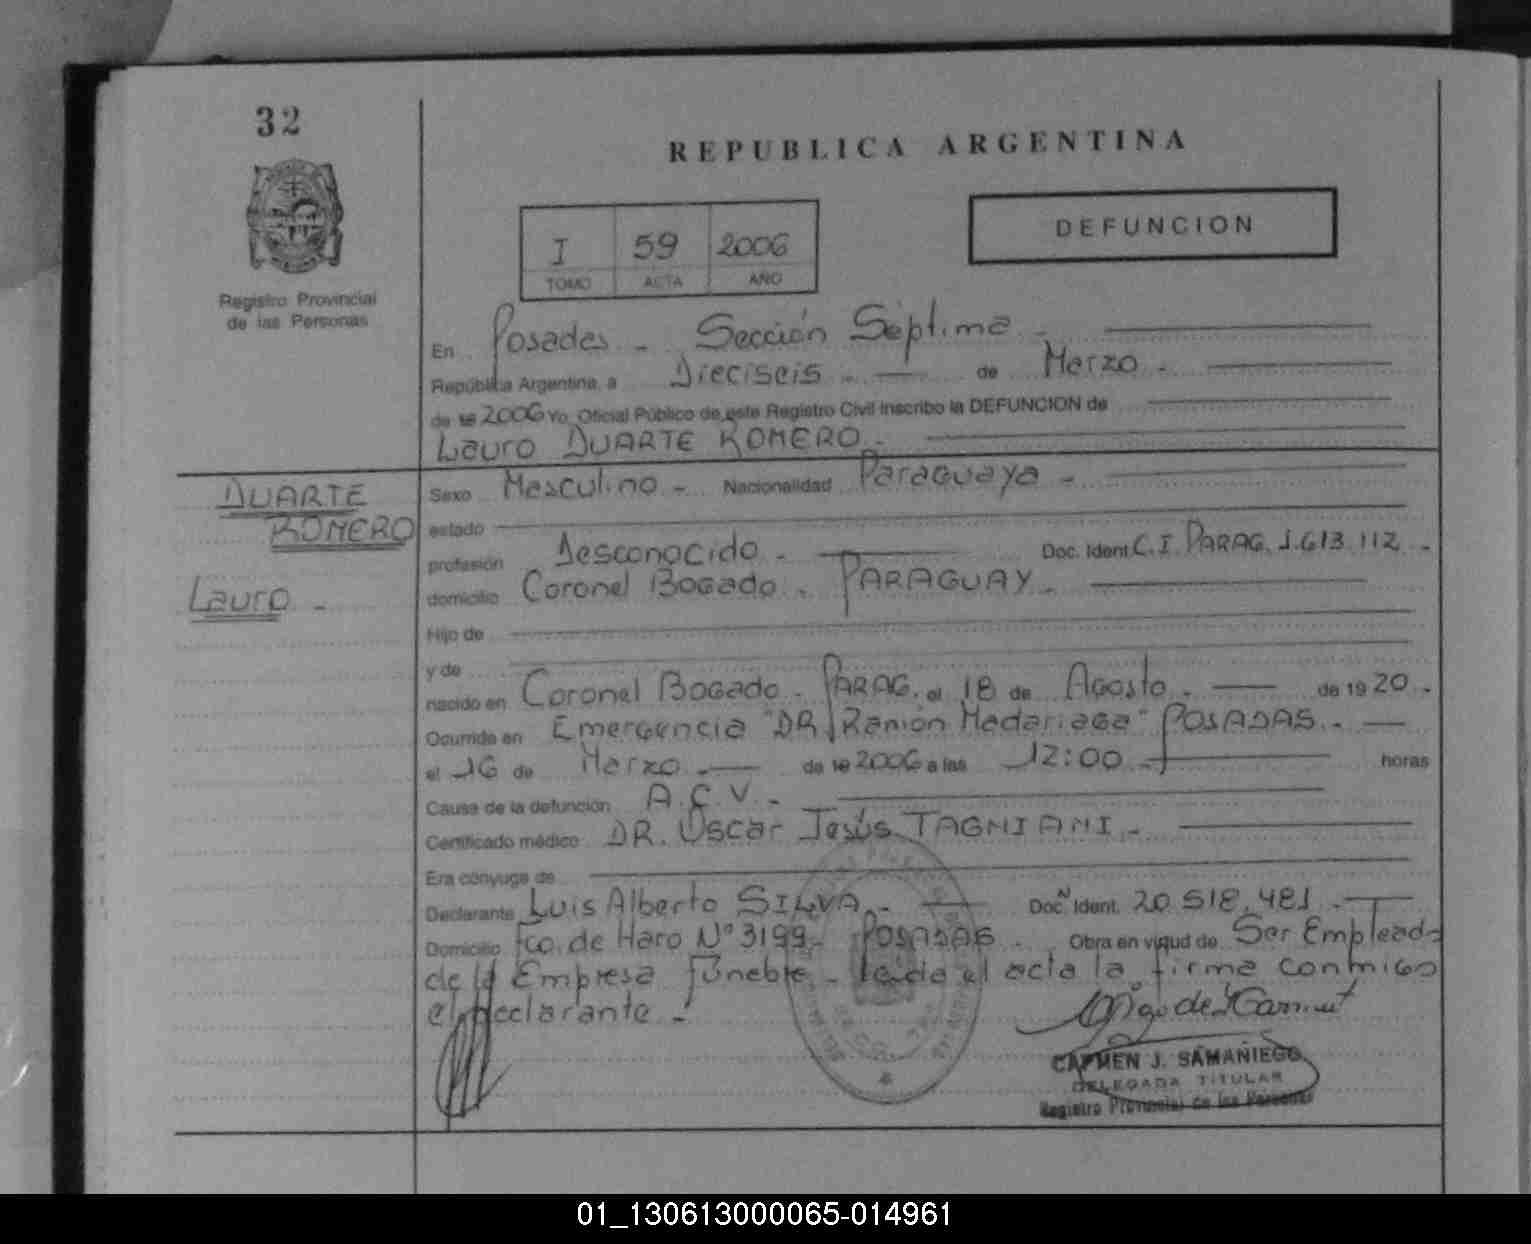 32
REPUBLICA ARGENTINA
I 59 2006
TOMO ACTA AÑO
DEFUNCION
Registro Provincial
de las Personas
En Posadas - Sección Séptima -
República Argentina, a Dieciseis - de Marzo -
de 19 2006 Yo, Oficial Público de este Registro Civil inscribo la DEFUNCION de
Lauro DUARTE ROMERO -
DUARTE
ROMERO
Lauro -
Sexo Masculino - Nacionalidad Paraguaya -
estado
profesión Desconocido - Doc. Ident. C.I. PARAG. 1.613.112 -
domicilio Coronel Bogado - PARAGUAY -
Hijo de
y de
nacido en Coronel Bogado - PARAG. el 18 de Agosto - de 19 20 -
Ocurrida en Emergencia "DR. Ramón Madariaga" POSADAS -
el 16 de Marzo - de 19 2006 a las 12:00 - horas
Causa de la defunción A.C.V. -
Certificado médico DR. Oscar Jesús TAGNIANI -
Era cónyuge de
Declarante Luis Alberto SILVA - Doc. Ident. Nº 20.518.481 -
Domicilio Fco. de Haro Nº 3199 - POSADAS - Obra en virtud de Ser Empleado
de la Empresa fúnebre - Leída el acta la firma conmigo
el declarante -
CARMEN J. SAMAÑIEGO
DELEGADA TITULAR
Registro Provincial de las Personas
01_130613000065-014961